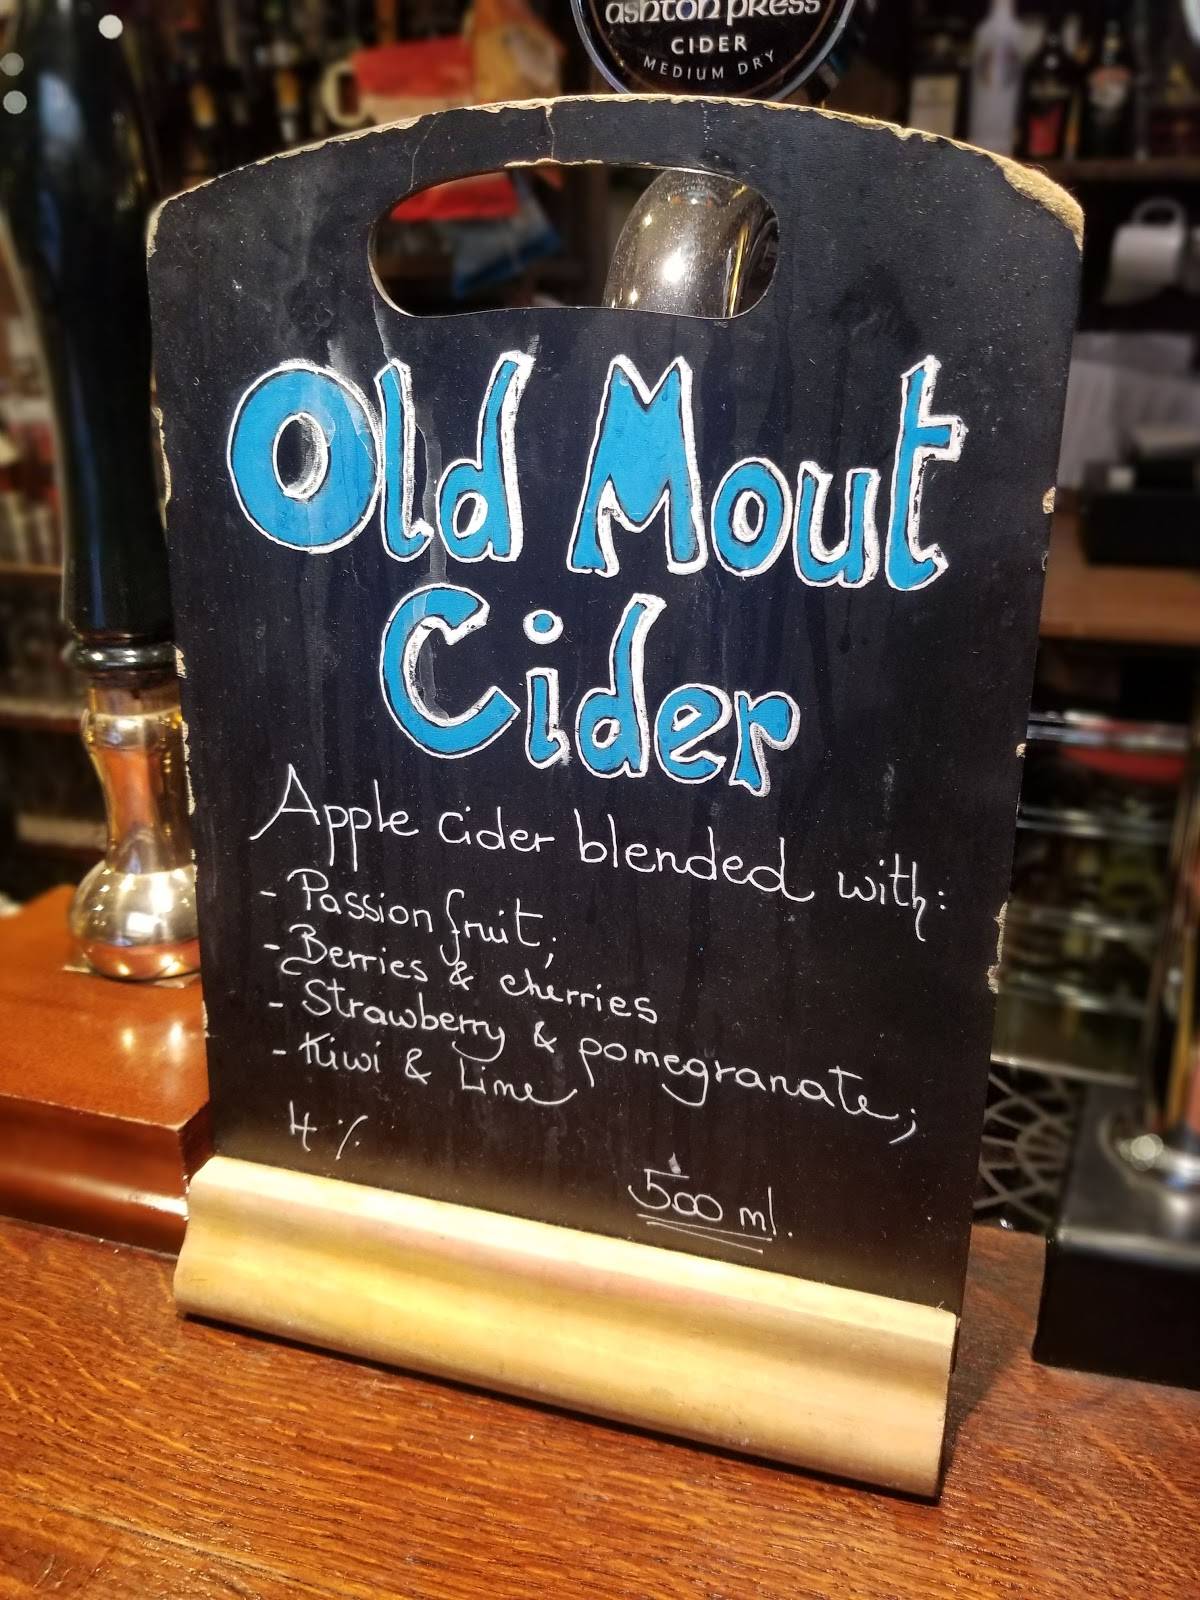 ashton press
CIDER
MEDIUM DRY
Old Mout
Cider
Apple cider blended with:
- Passion fruit;
- Berries & cherries
- Strawberry & pomegranate;
- Kiwi & Lime
4 %
500 ml.